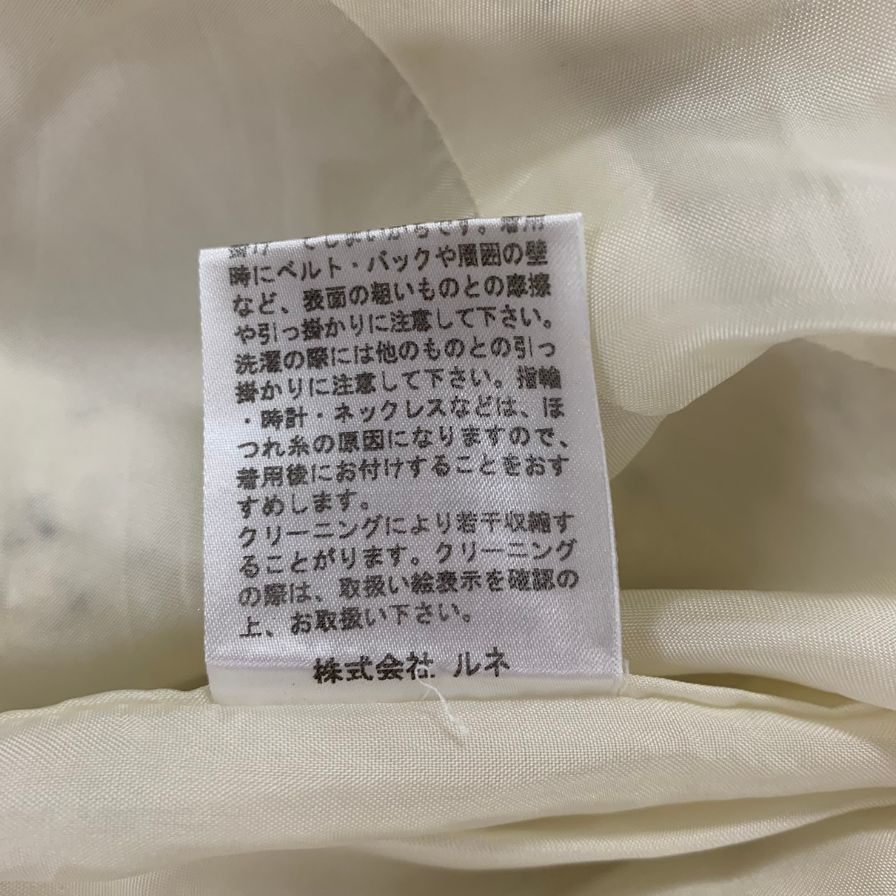 てしまいがちです。着用
時にベルト・バックや周囲の壁
など、表面の粗いものとの摩擦
や引っ掛かりに注意して下さい。
洗濯の際には他のものとの引っ
掛かりに注意して下さい。指輪
・時計・ネックレスなどは、ほ
つれ糸の原因になりますので、
着用後にお付けすることをおす
すめします。
クリーニングにより若干収縮す
ることがります。クリーニング
の際は、取扱い絵表示を確認の
上、お取扱い下さい。
株式会社 ルネ